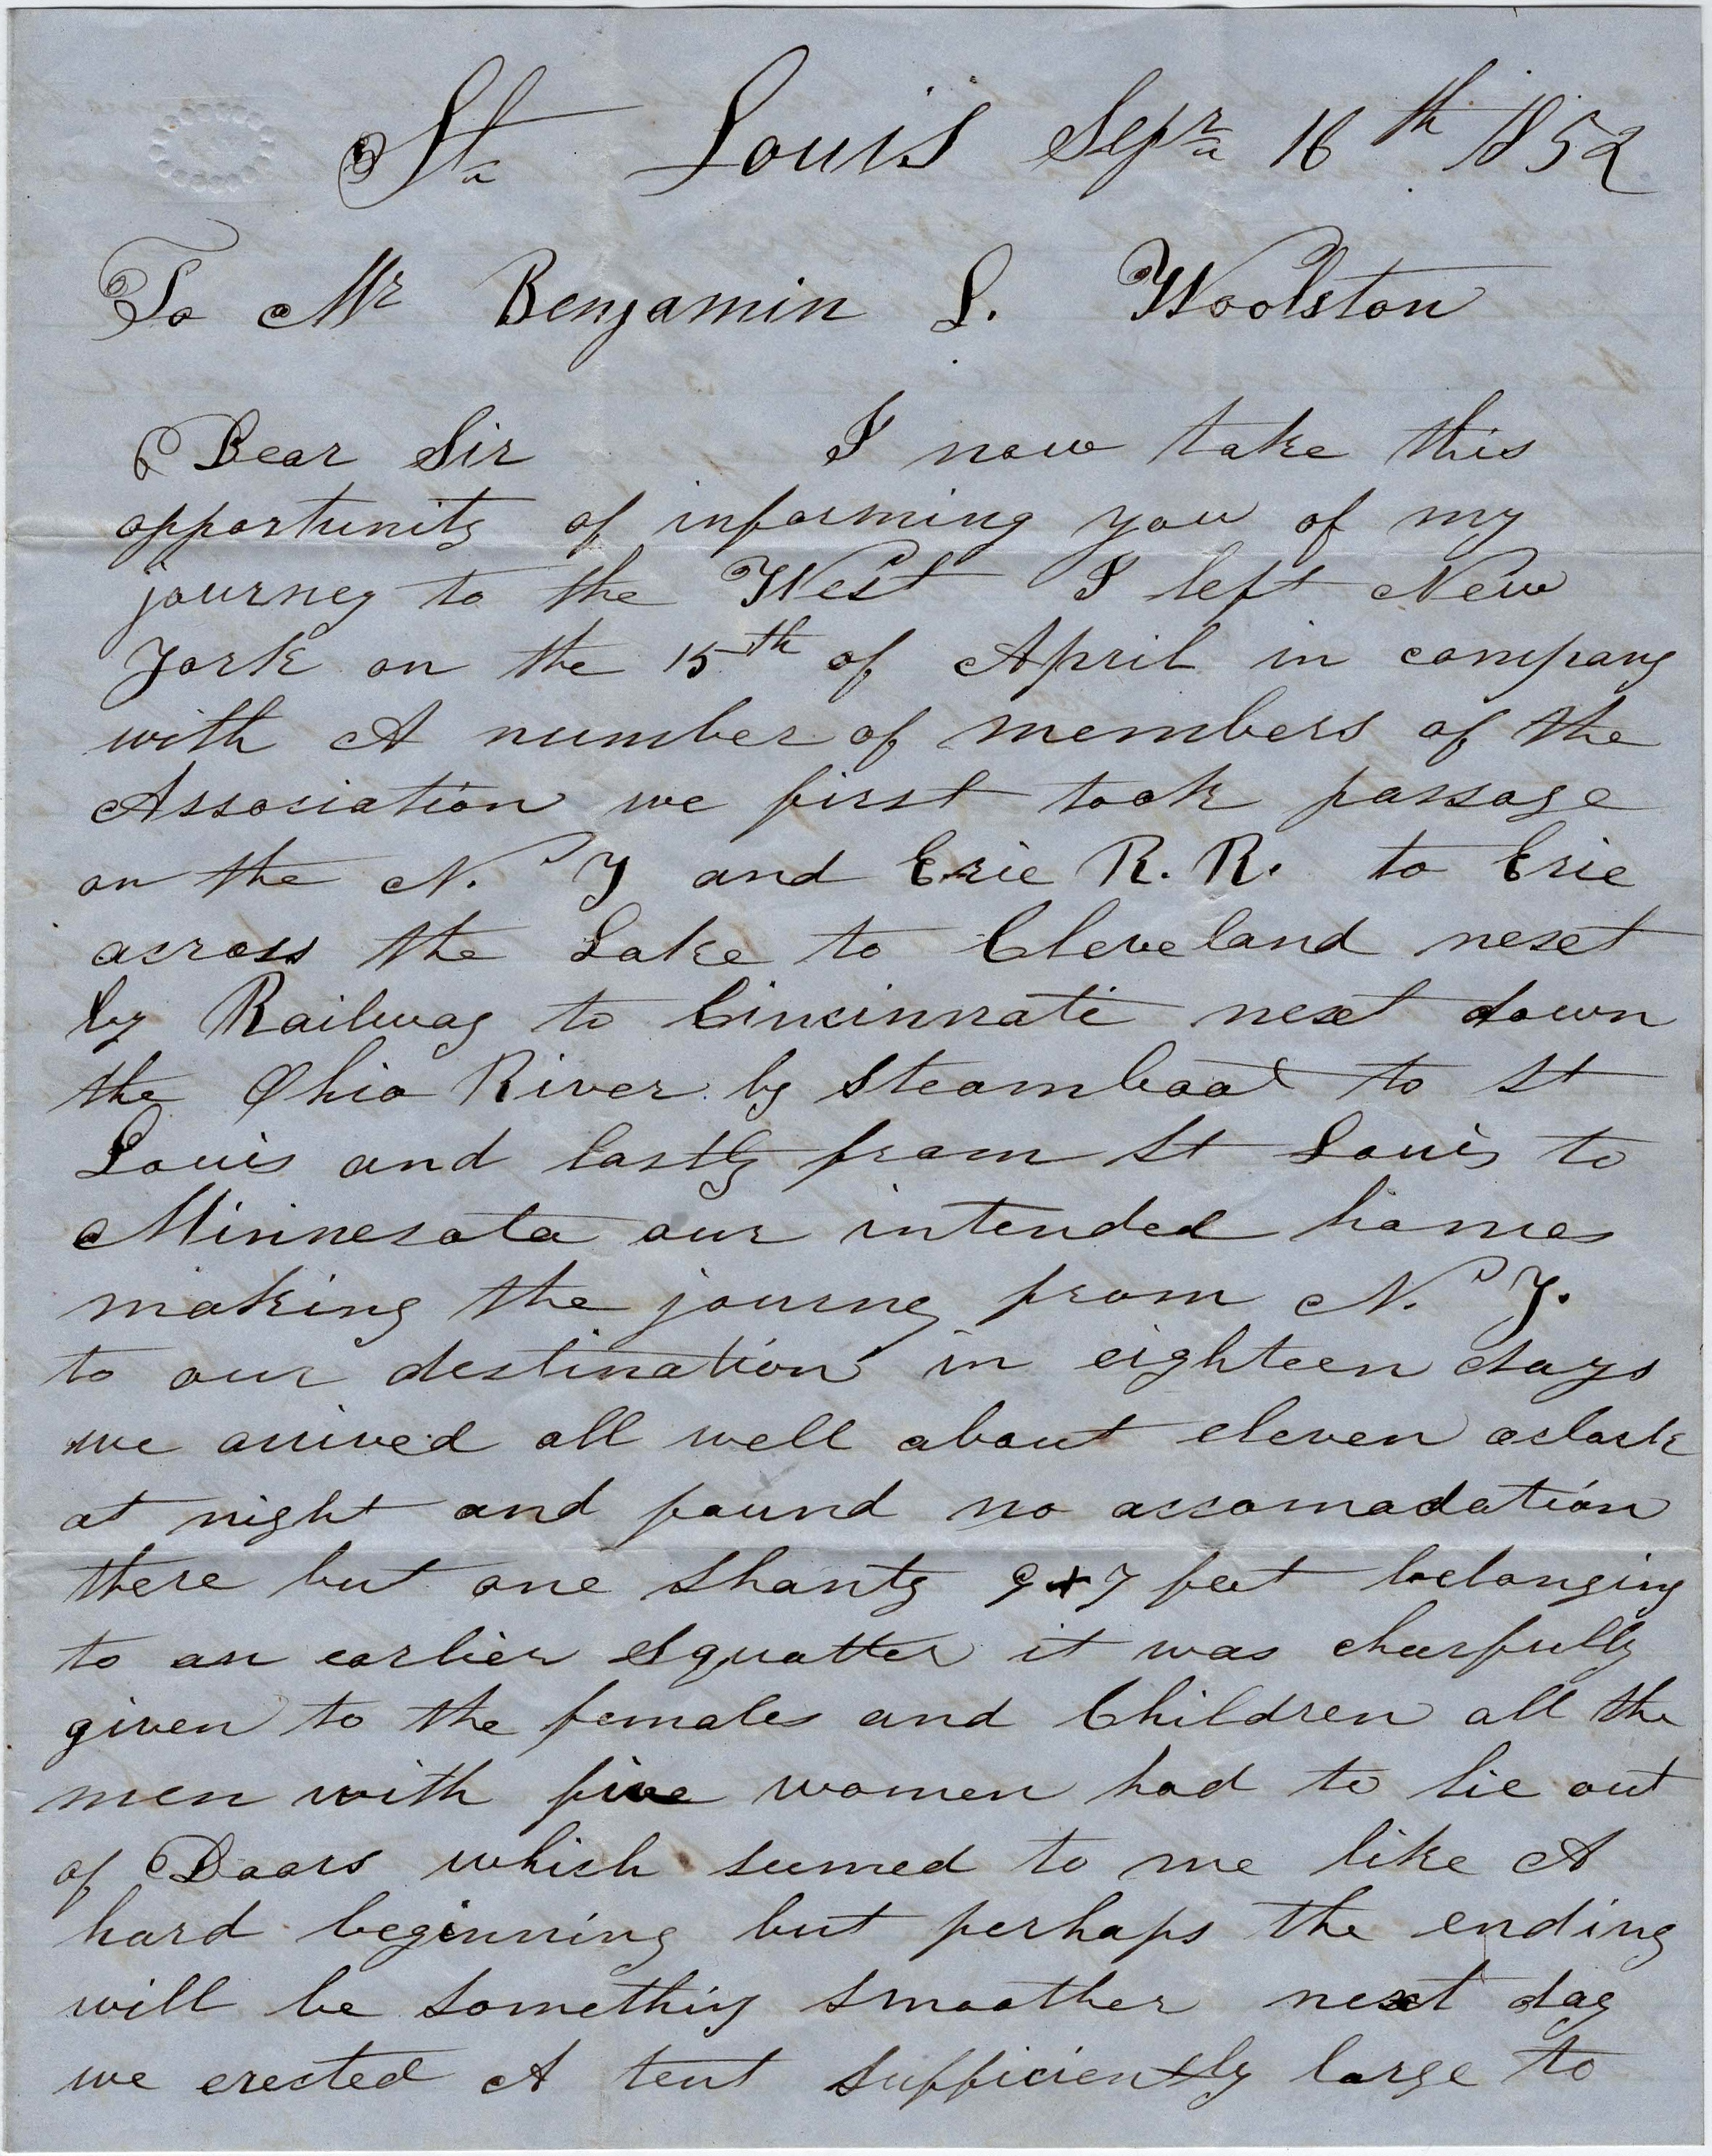 St. Louis Sepr. 16th 1852
To Mr Benjamin L. Woolston
Dear Sir I now take this
opportunity of informing you of my
journey to the West I left New
York on the 15th of April in company
with A number of members of the
Association we first took passage
on the N. Y and Erie R. R. to Erie
across the Lake to Cleveland next
by Railway to Cincinnati next down
the Ohio River by Steamboat to St
Louis and lastly from St Louis to
Minnesota our intended homes
making the journey from N. Y.
to our destination in eighteen days
we arrived all well about eleven oclock
at night and found no accomadation
there but one Shanty 9+7 feet belonging
to an earlier Squatter it was cheerfully
given to the females and Children all the
men with five women had to lie out
of Doors which seemed to me like A
hard beginning but perhaps the ending
will be something smoother next day
we erected A tent Sufficiently large to